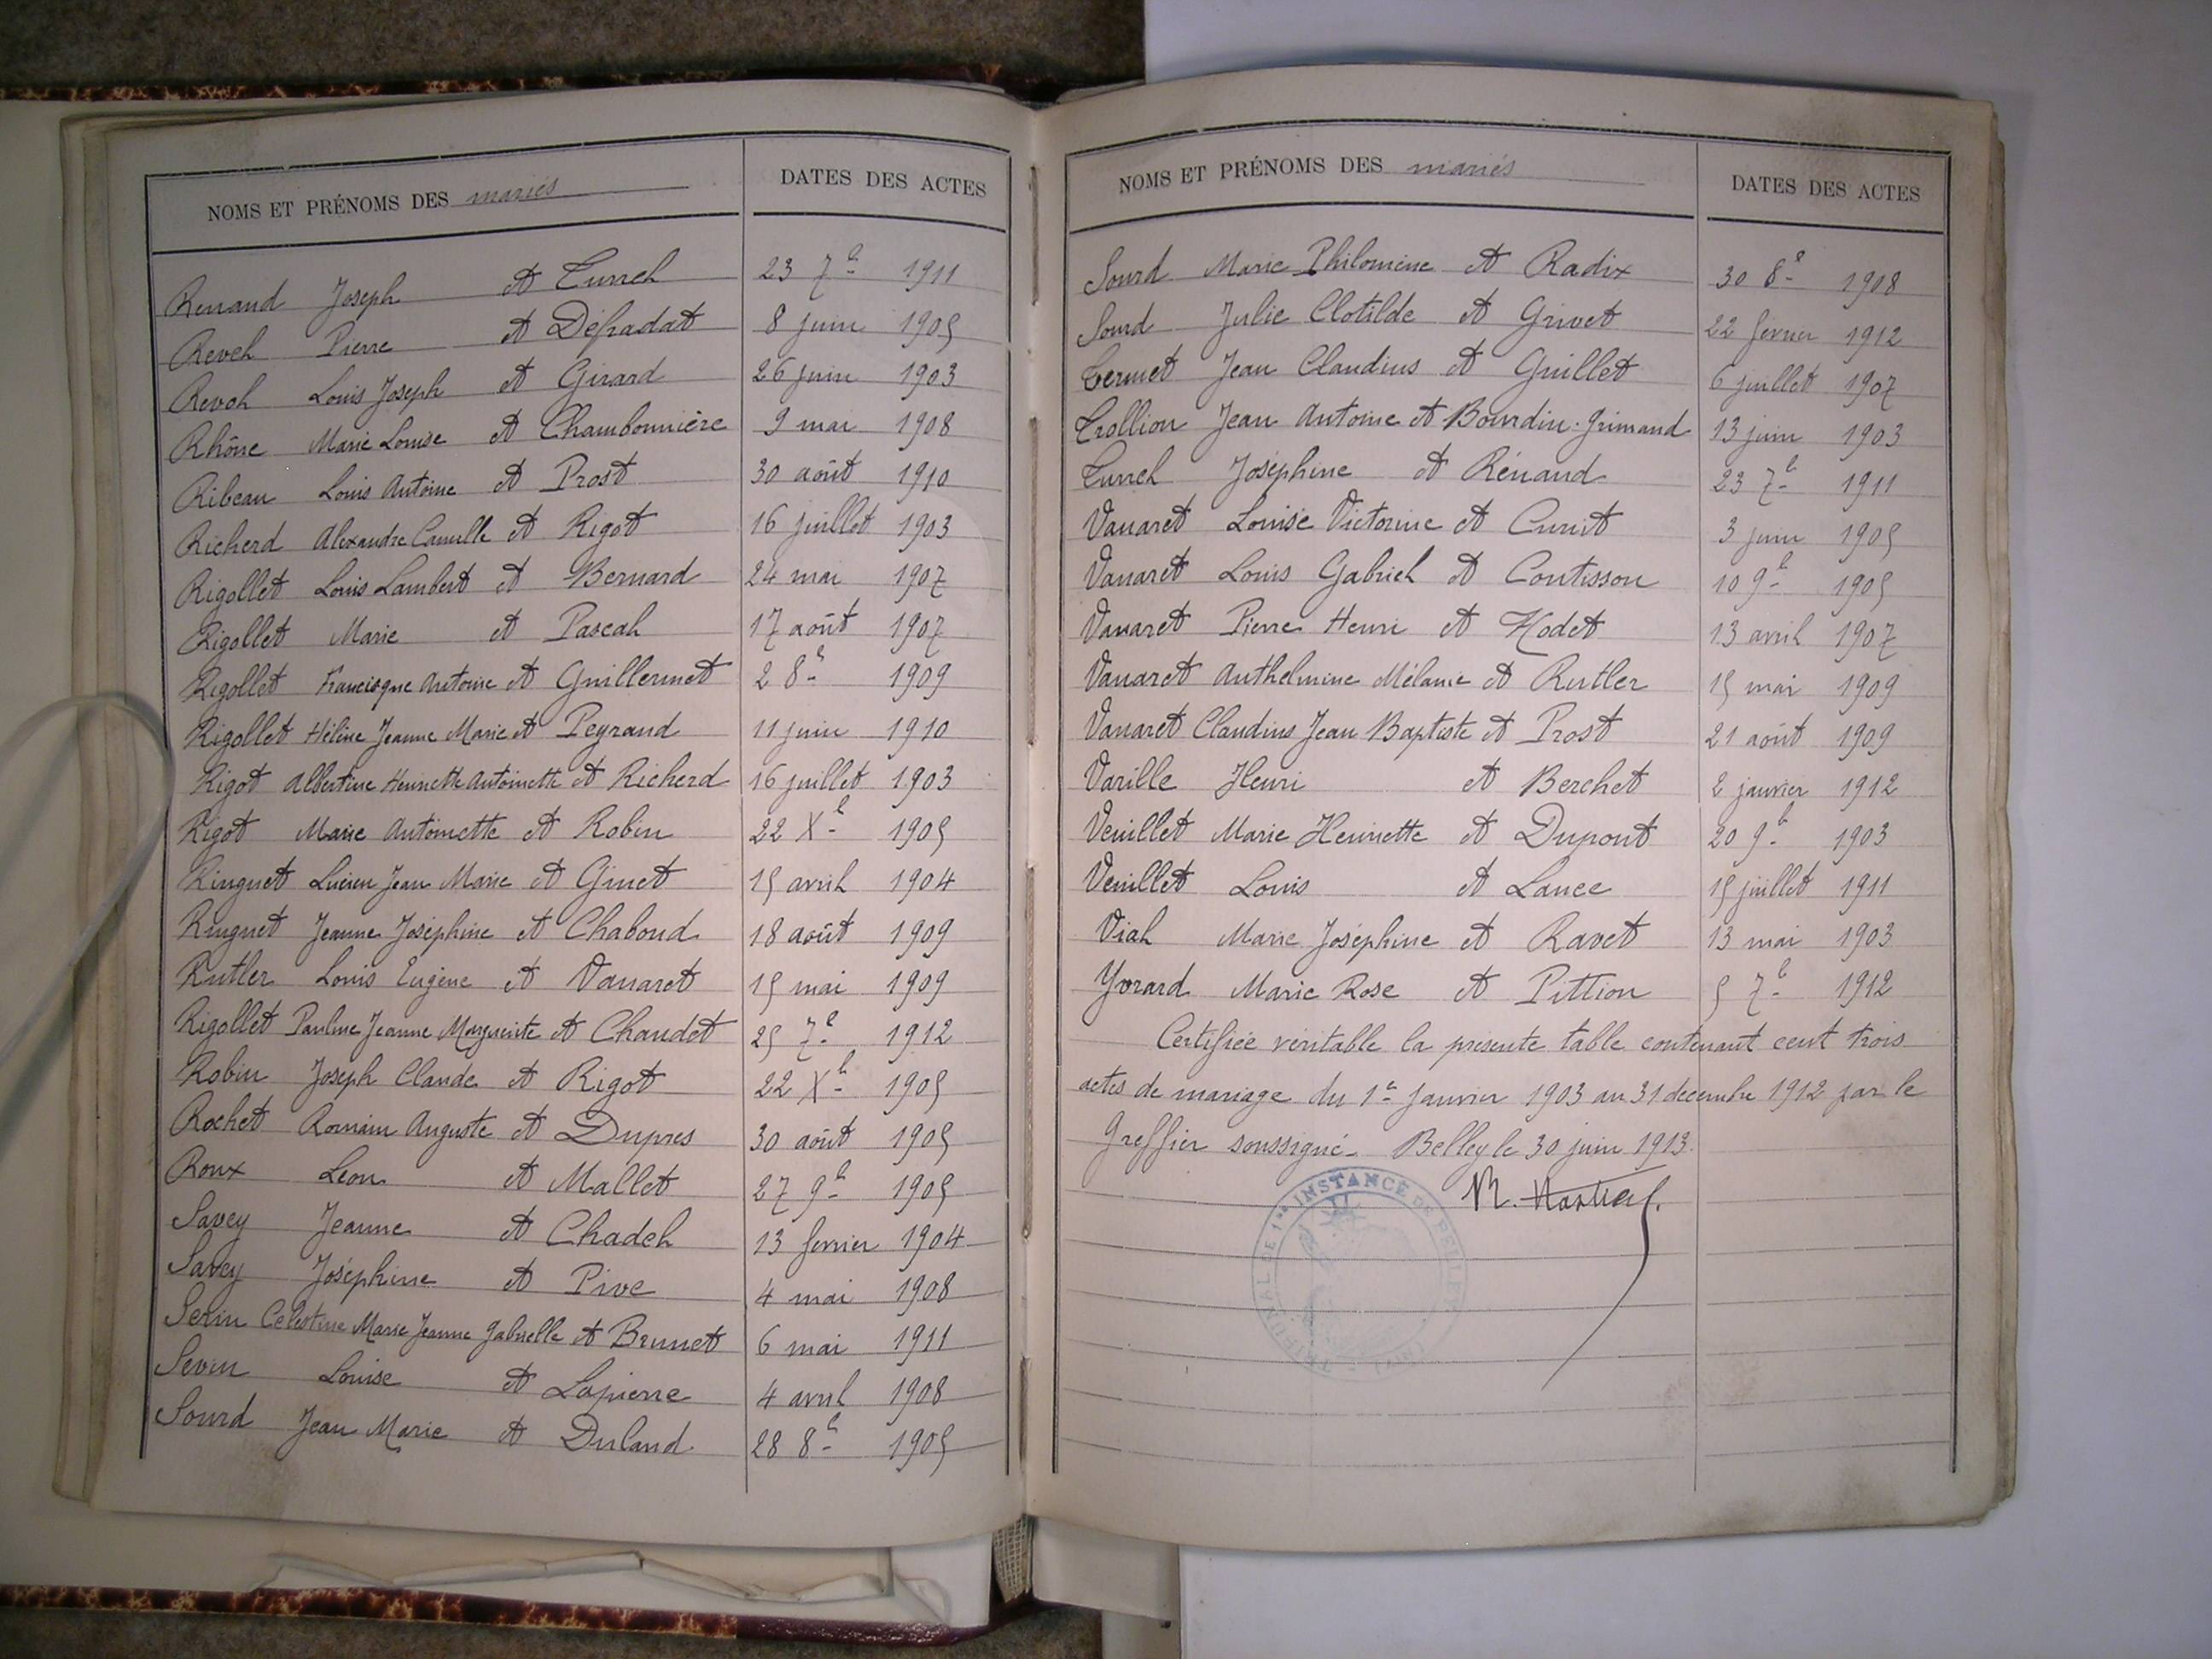 NOMS ET PRÉNOMS DES mariés DATES DES ACTES
Renaud Joseph et Turrel 23 7b 1911
Revel Pierre et Dépadat 8 juin 1905
Revol Louis Joseph et Girard 26 juin 1903
Rhône Marie Louise et Chambonnière 9 mai 1908
Ribeau Louis Antoine et Prost 30 août 1910
Richerd Alexandre Camille et Rigot 16 juillet 1903
Rigollet Louis Lambert et Bernard 24 mai 1907
Rigollet Marie et Pascal 17 août 1907
Rigollet Francisque Antoine et Guillermet 2 8b 1909
Rigollet Hélène Jeanne Marie et Peyraud 11 juin 1910
Rigot Albertine Henriette Antoinette et Richerd 16 juillet 1903
Rigot Marie Antoinette et Robin 22 Xb 1905
Ringuet Lucien Jean Marie et Ginet 15 avril 1904
Ringuet Jeanne Joséphine et Chaboud 18 août 1909
Rutler Louis Eugène et Vanaret 15 mai 1909
Rigollet Pauline Jeanne Marguerite et Chaudet 25 7b 1912
Robin Joseph Claude et Rigot 22 Xb 1905
Rochet Romain Auguste et Dupres 30 août 1905
Roux Léon et Mallet 27 9b 1905
Savey Jeanne et Chadel 13 fevrier 1904
Savey Joséphine et Pive 4 mai 1908
Serin Celestine Marie Jeanne Gabrielle et Brunet 6 mai 1911
Sevin Louise et Lapierre 4 avril 1908
Sourd Jean Marie et Duland 28 8b 1905
NOMS ET PRÉNOMS DES mariés DATES DES ACTES
Sourd Marie Philomène et Radix 30 8b 1908
Sourd Julie Clotilde et Grivet 22 fevrier 1912
Termet Jean Claudius et Guillet 6 juillet 1907
Trollion Jean Antoine et Bourdin-Grimaud 13 juin 1903
Turrel Joséphine et Rénaud 23 7b 1911
Vanaret Louise Victorine et Curnit 3 juin 1905
Vanaret Louis Gabriel et Contisson 10 9b 1905
Vanaret Pierre Henri et Hodet 13 avril 1907
Vanaret Anthelmine Mélanie et Rutler 15 mai 1909
Vanaret Claudius Jean Baptiste et Prost 21 août 1909
Varille Henri et Berchet 2 janvier 1912
Veuillet Marie Henriette et Dupont 20 9b 1903
Veuillet Louis et Lance 15 juillet 1911
Vial Marie Joséphine et Ravet 13 mai 1903
Yvrard Marie Rose et Pittion 5 7b 1912
Certifiée véritable la présente table contenant cent trois
actes de mariage du 1er Janvier 1903 au 31 decembre 1912 par le
Greffier soussigné. Belley le 30 juin 1913.